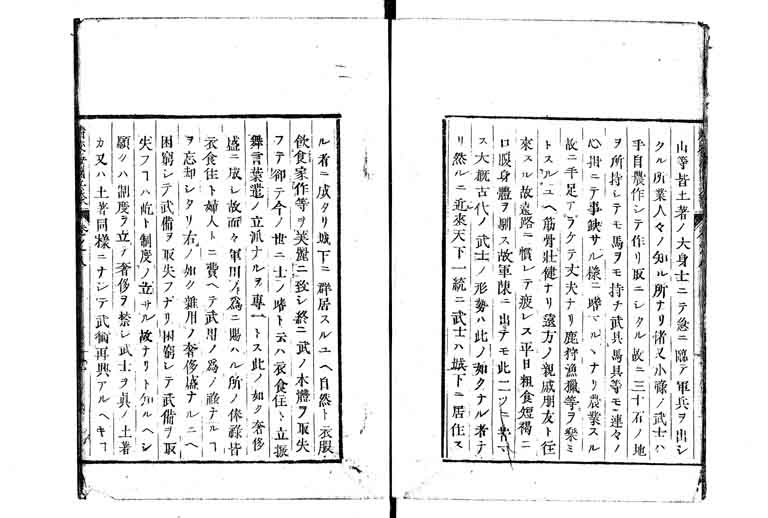 山等皆土著ノ大身士ニテ急ニ臨テ軍兵ヲ出シ
タル所業人々ノ知ル所ナリ諸又小祿ノ武士ハ
手自農作シテ作リ取ニシタル故ニ三十石ノ地
ヲ所持シテモ馬ヲモ持チ武具馬具等モ連々ノ
心掛ニテ事缺サル様ニ嗜 ナリ農業スル
故ニ手足アラクテ丈夫ナリ鹿狩漁獵等ヲ樂ミ
トスルユヘ筋骨壯健ナリ遠方ノ親戚朋友ト往
來スル故遠路ニ慣レテ疲レス平日粗食短褐ニ
口腹身體ヲ馴ス故軍陳ニ出テモ此二ツニ苦マ
ス大概古代ノ武士ノ形勢ハ此ノ如クナル者テ
リ然ルニ近來天下一統ニ武士ハ城下ニ居住ス
ル者ニ成タリ城下ニ群居スルユヘ自然ト衣服
飲食家作等ヲ美麗ニ致シ終ニ武ノ本體ヲ取失
フテ卻テ今ノ世ニ士ノ嗜ト云ハ衣食住ト立振
舞言葉遣ノ立派ナルヲ專一トス此ノ如ク奢侈
盛ニ成シ故面々軍用ノ爲ニ賜ハル所ノ俸祿皆
衣食住ト婦人トニ費ヘテ武用ノ爲ノ祿ナルヿ
ヲ忘却シタリ右ノ如ク雜用ノ奢侈盛ナルニヘ
困窮シテ武備ヲ取失フナリ困窮シテ武備ヲ取
失フヿハ畢ト制度ノ立サル故ナリト知ルヘシ
願クハ制度ヲ立ノ奢侈ヲ禁シ武士ヲ眞ノ土著
カ又ハ土著同樣ニナシテ武術再興アルヘキヿ